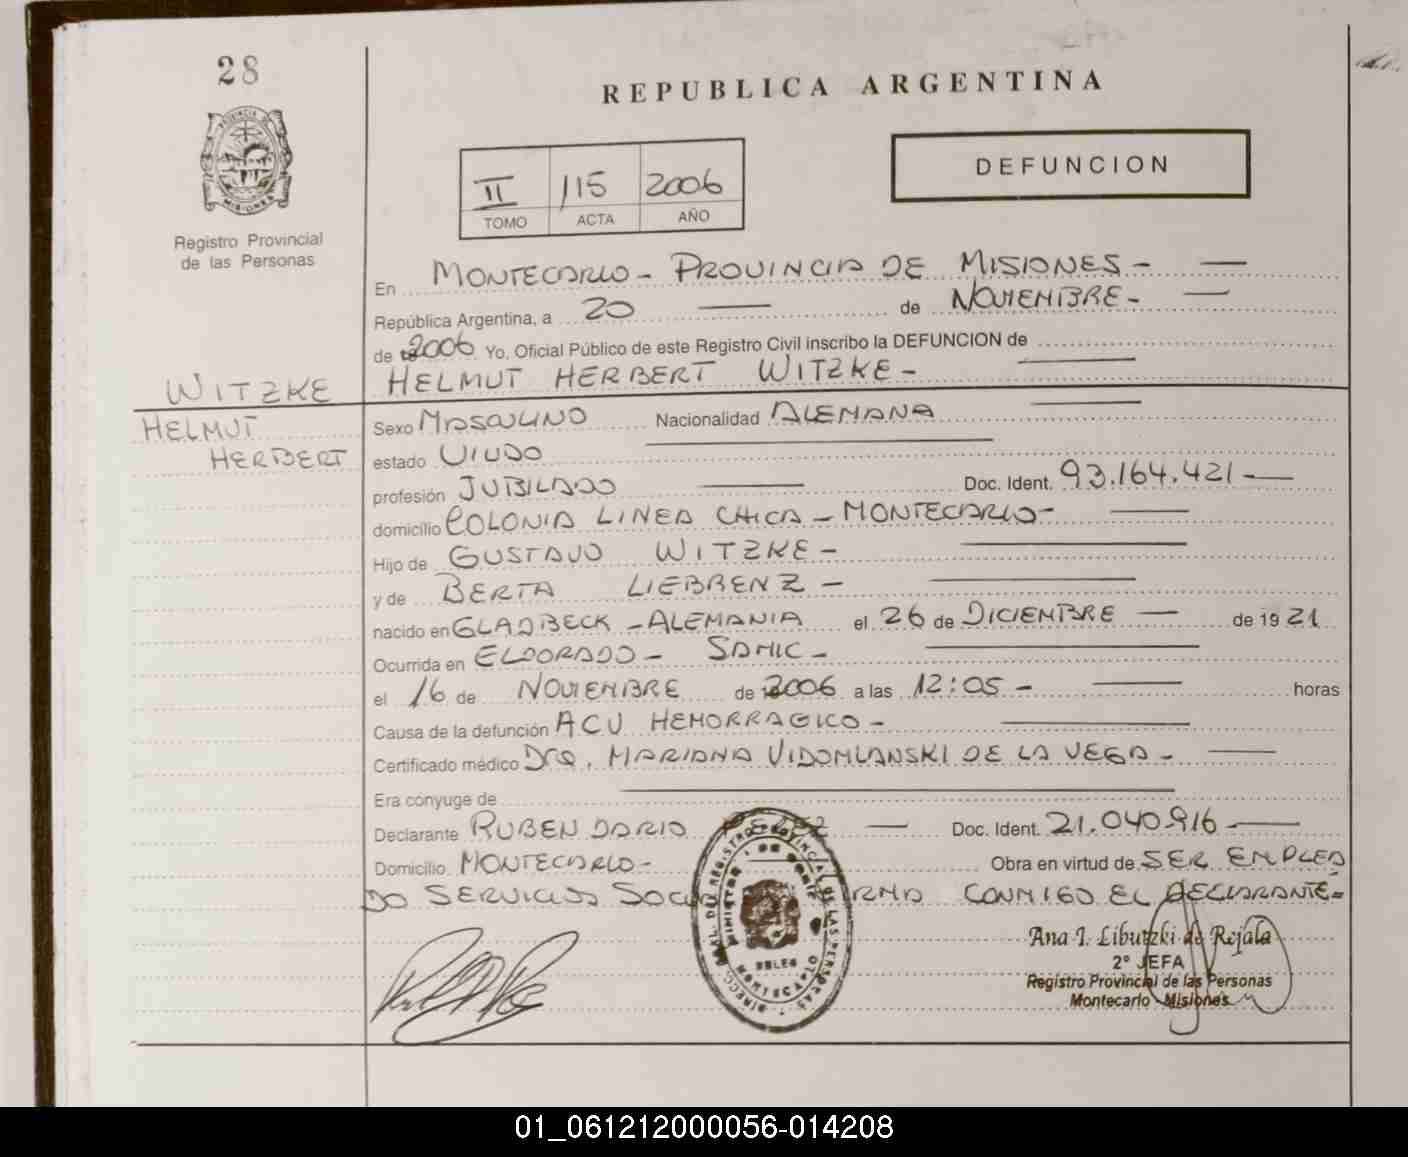 28
REPUBLICA ARGENTINA
PROVINCIA DE
MISIONES
Registro Provincial
de las Personas
II 115 2006
TOMO ACTA AÑO
DEFUNCION
En MONTECARLO - PROVINCIA DE MISIONES -
República Argentina, a 20 de NOVIEMBRE -
de 2006 Yo, Oficial Público de este Registro Civil inscribo la DEFUNCION de
HELMUT HERBERT WITZKE -
WITZKE
HELMUT
HERBERT
Sexo MASCULINO Nacionalidad ALEMANA
estado VIUDO
profesión JUBILADO Doc. Ident. 93.164.421 -
domicilio COLONIA LINEA CHICA - MONTECARLO -
Hijo de GUSTAVO WITZKE -
y de BERTA LIEBRENZ -
nacido en GLADBECK - ALEMANIA el 26 de DICIEMBRE - de 19 21
Ocurrida en ELDORADO - SAMIC -
el 16 de NOVIEMBRE de 2006 a las 12:05 - horas
Causa de la defunción ACV HEMORRAGICO -
Certificado médico Dra. MARIANA VIDOMLANSKI DE LA VEGA -
Era cónyuge de
Declarante RUBEN DARIO Doc. Ident. 21.040.916 -
Domicilio MONTECARLO - Obra en virtud de SER EMPLEA
DO SERVICIOS CONMIGO EL DECLARANTE =
MONTECARLO
Ana I. Libutzki de Rejala
2º JEFA
Registro Provincial de las Personas
Montecarlo - Misiones
01_061212000056-014208